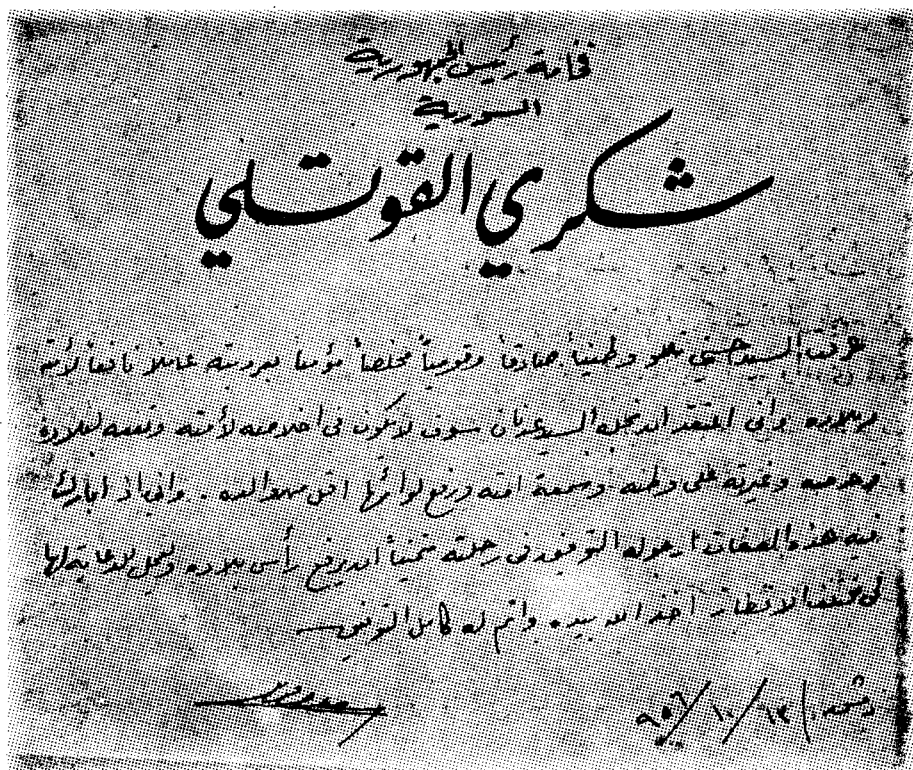 فخامة رئيس الجمهورية
السورية
شكري القوتلي
عرفت السيد حسني تللو وطنياً صادقاً وقومياً مخلصاً مؤمناً بعروبته عاملاً نافعاً لأمته
وبلاده واني اعتقد ان نجله السيد عدنان سوف لا يكون في اخلاصه لأمته ونفعه لبلاده
وحرصه وغيرته على وطنه وسمعة امته ورفع لوائها اقل من والده . واني اذ ابارك
فيه هذه الصفات ارجو له التوفيق في رحلته متمنياً ان يرفع رأس بلاده ويعمل للدعاية لها
في مختلف الاقطار اخذ الله بيده واتم له كامل التوفيق
دمشق ١٠/ /٩٥٦